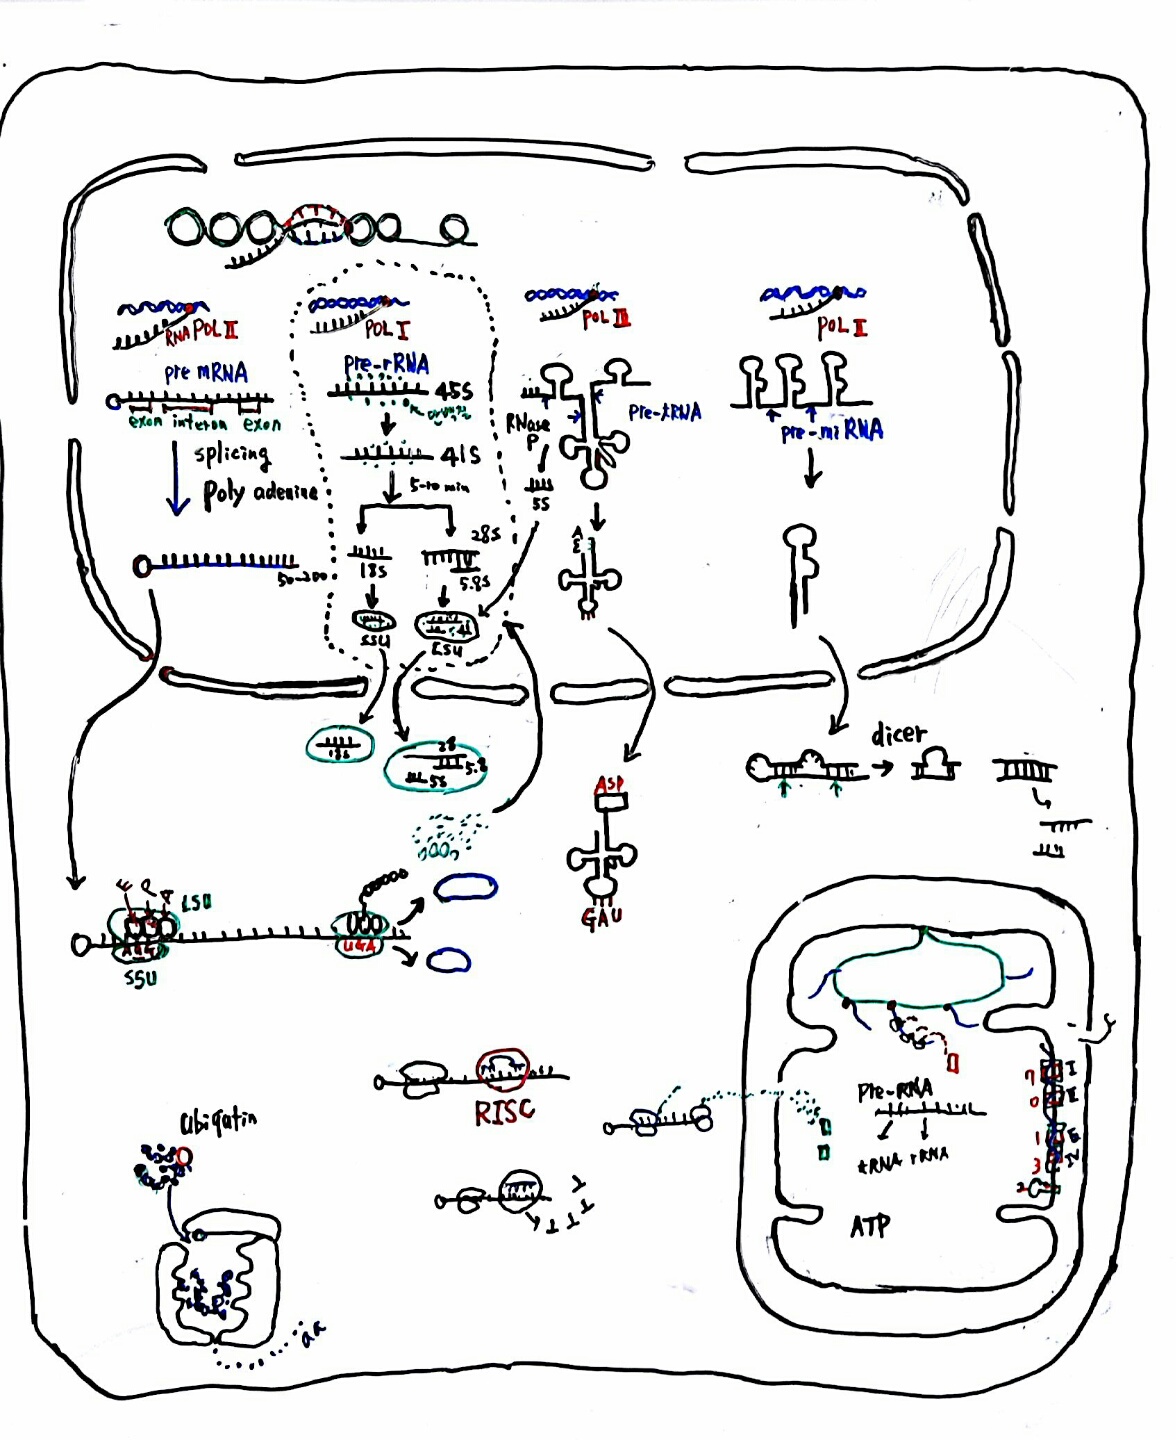 RNA POL II
POL I
POL III
POL II
pre mRNA
pre-rRNA
45S
exon interon exon
RNase
P
pre-tRNA
pre-miRNA
splicing
Poly adenine
41S
5-10 min
5S
28S
18S
5.8S
50-200
SSU
LSU
18s
28
5.8
5S
dicer
ASP
GAU
E P A
LSU
AUG
UGA
SSU
RISC
Pre-RNA
tRNA rRNA
ATP
7 I
0 II
1 III
3 IV
2
Ubiqatin
aa